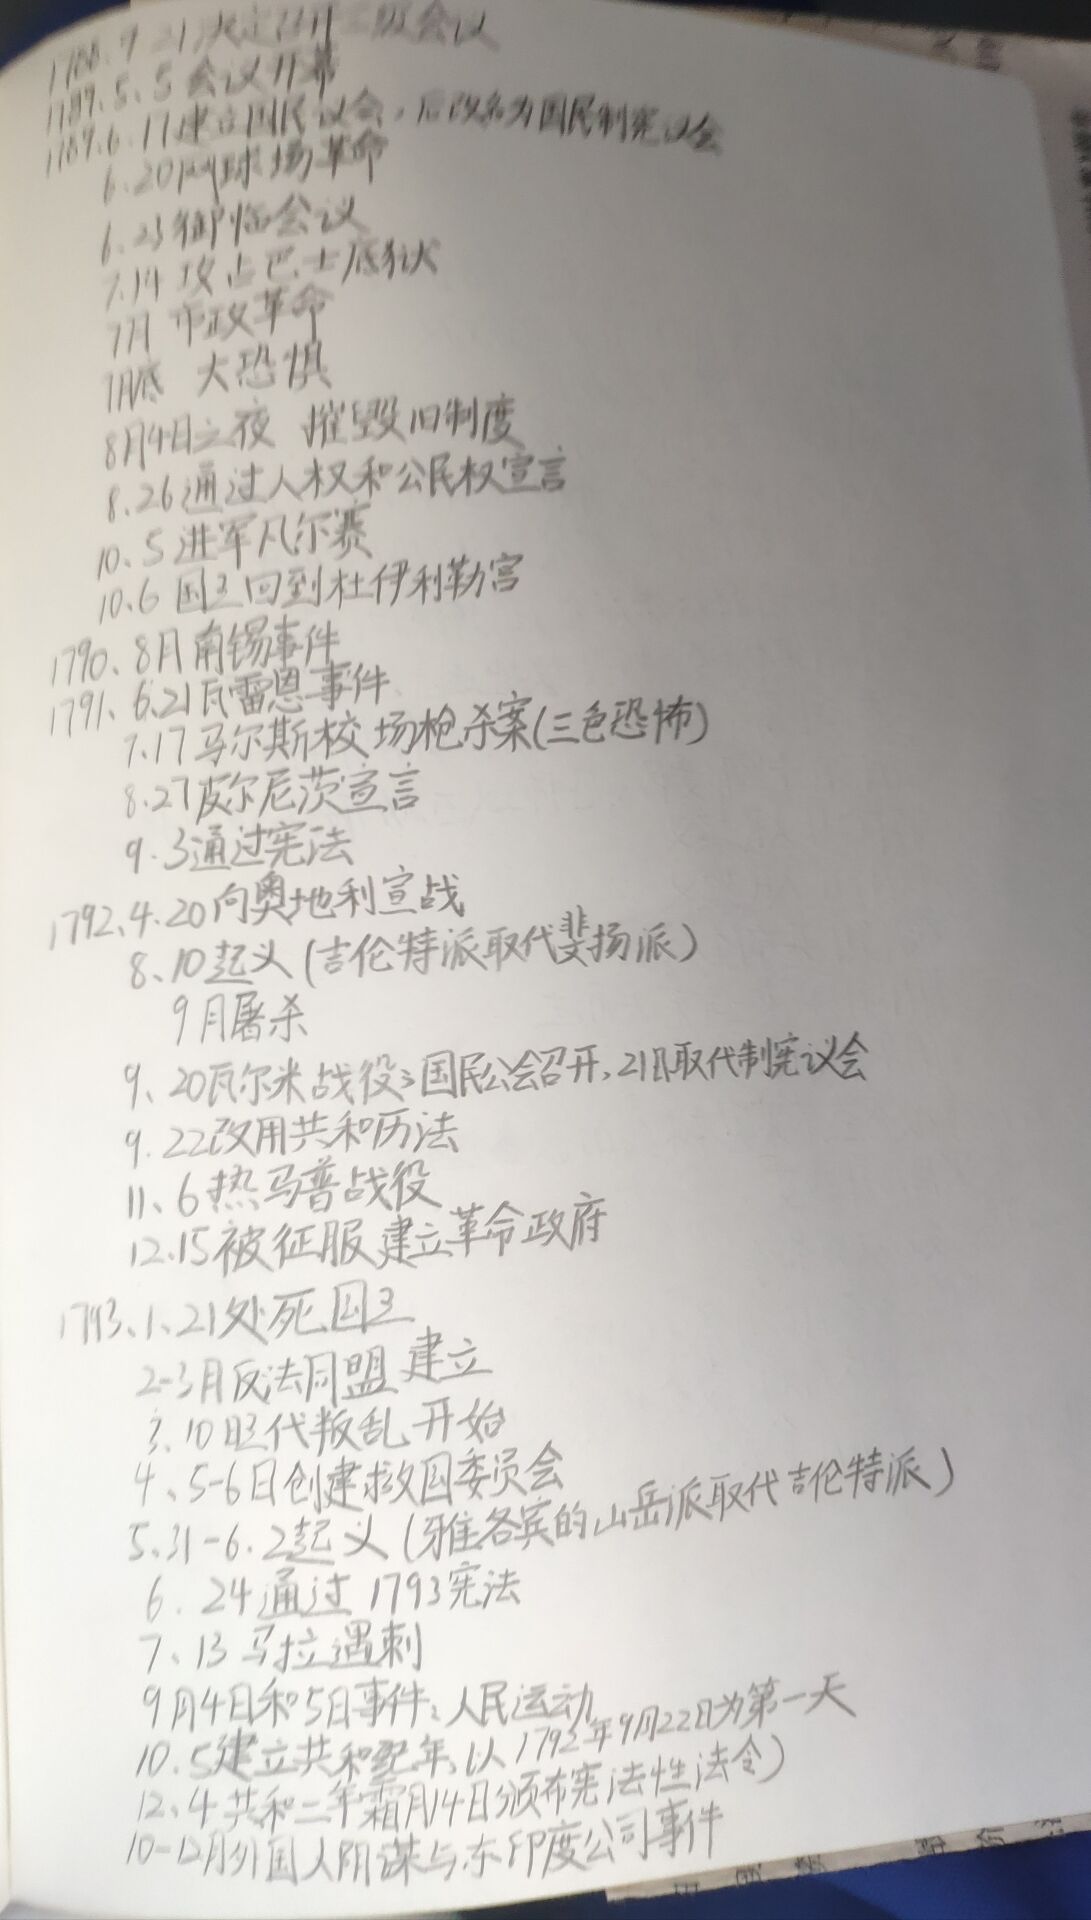 1788.9.21决定召开三级会议
1789.5.5会议开幕
1789.6.17建立国民议会,后改名为国民制宪议会
6.20网球场革命
6.23御临会议
7.14攻占巴士底狱
7月 市政革命
7月底 大恐惧
8月4日之夜 摧毁旧制度
8.26通过人权和公民权宣言
10.5进军凡尔赛
10.6国王回到杜伊利勒宫
1790.8月南锡事件
1791.6.21瓦雷恩事件
7.17马尔斯校场枪杀案(三色恐怖)
8.27皮尔尼茨宣言
9.3通过宪法
1792.4.20向奥地利宣战
8.10起义(吉伦特派取代斐扬派)
9月屠杀
9.20瓦尔米战役;国民公会召开,21日取代制宪议会
9.22改用共和历法
11.6热马普战役
12.15被征服建立革命政府
1793.1.21处死国王
2-3月反法同盟建立
3.10旺代叛乱开始
4.5-6日创建救国委员会
5.31-6.2起义(雅各宾的山岳派取代吉伦特派)
6.24通过1793宪法
7.13马拉遇刺
9月4日和5日事件:人民运动
10.5建立共和纪年,以1792年9月22日为第一天
12.4共和二年霜月14日颁布宪法性法令)
10-12月外国人阴谋与东印度公司事件